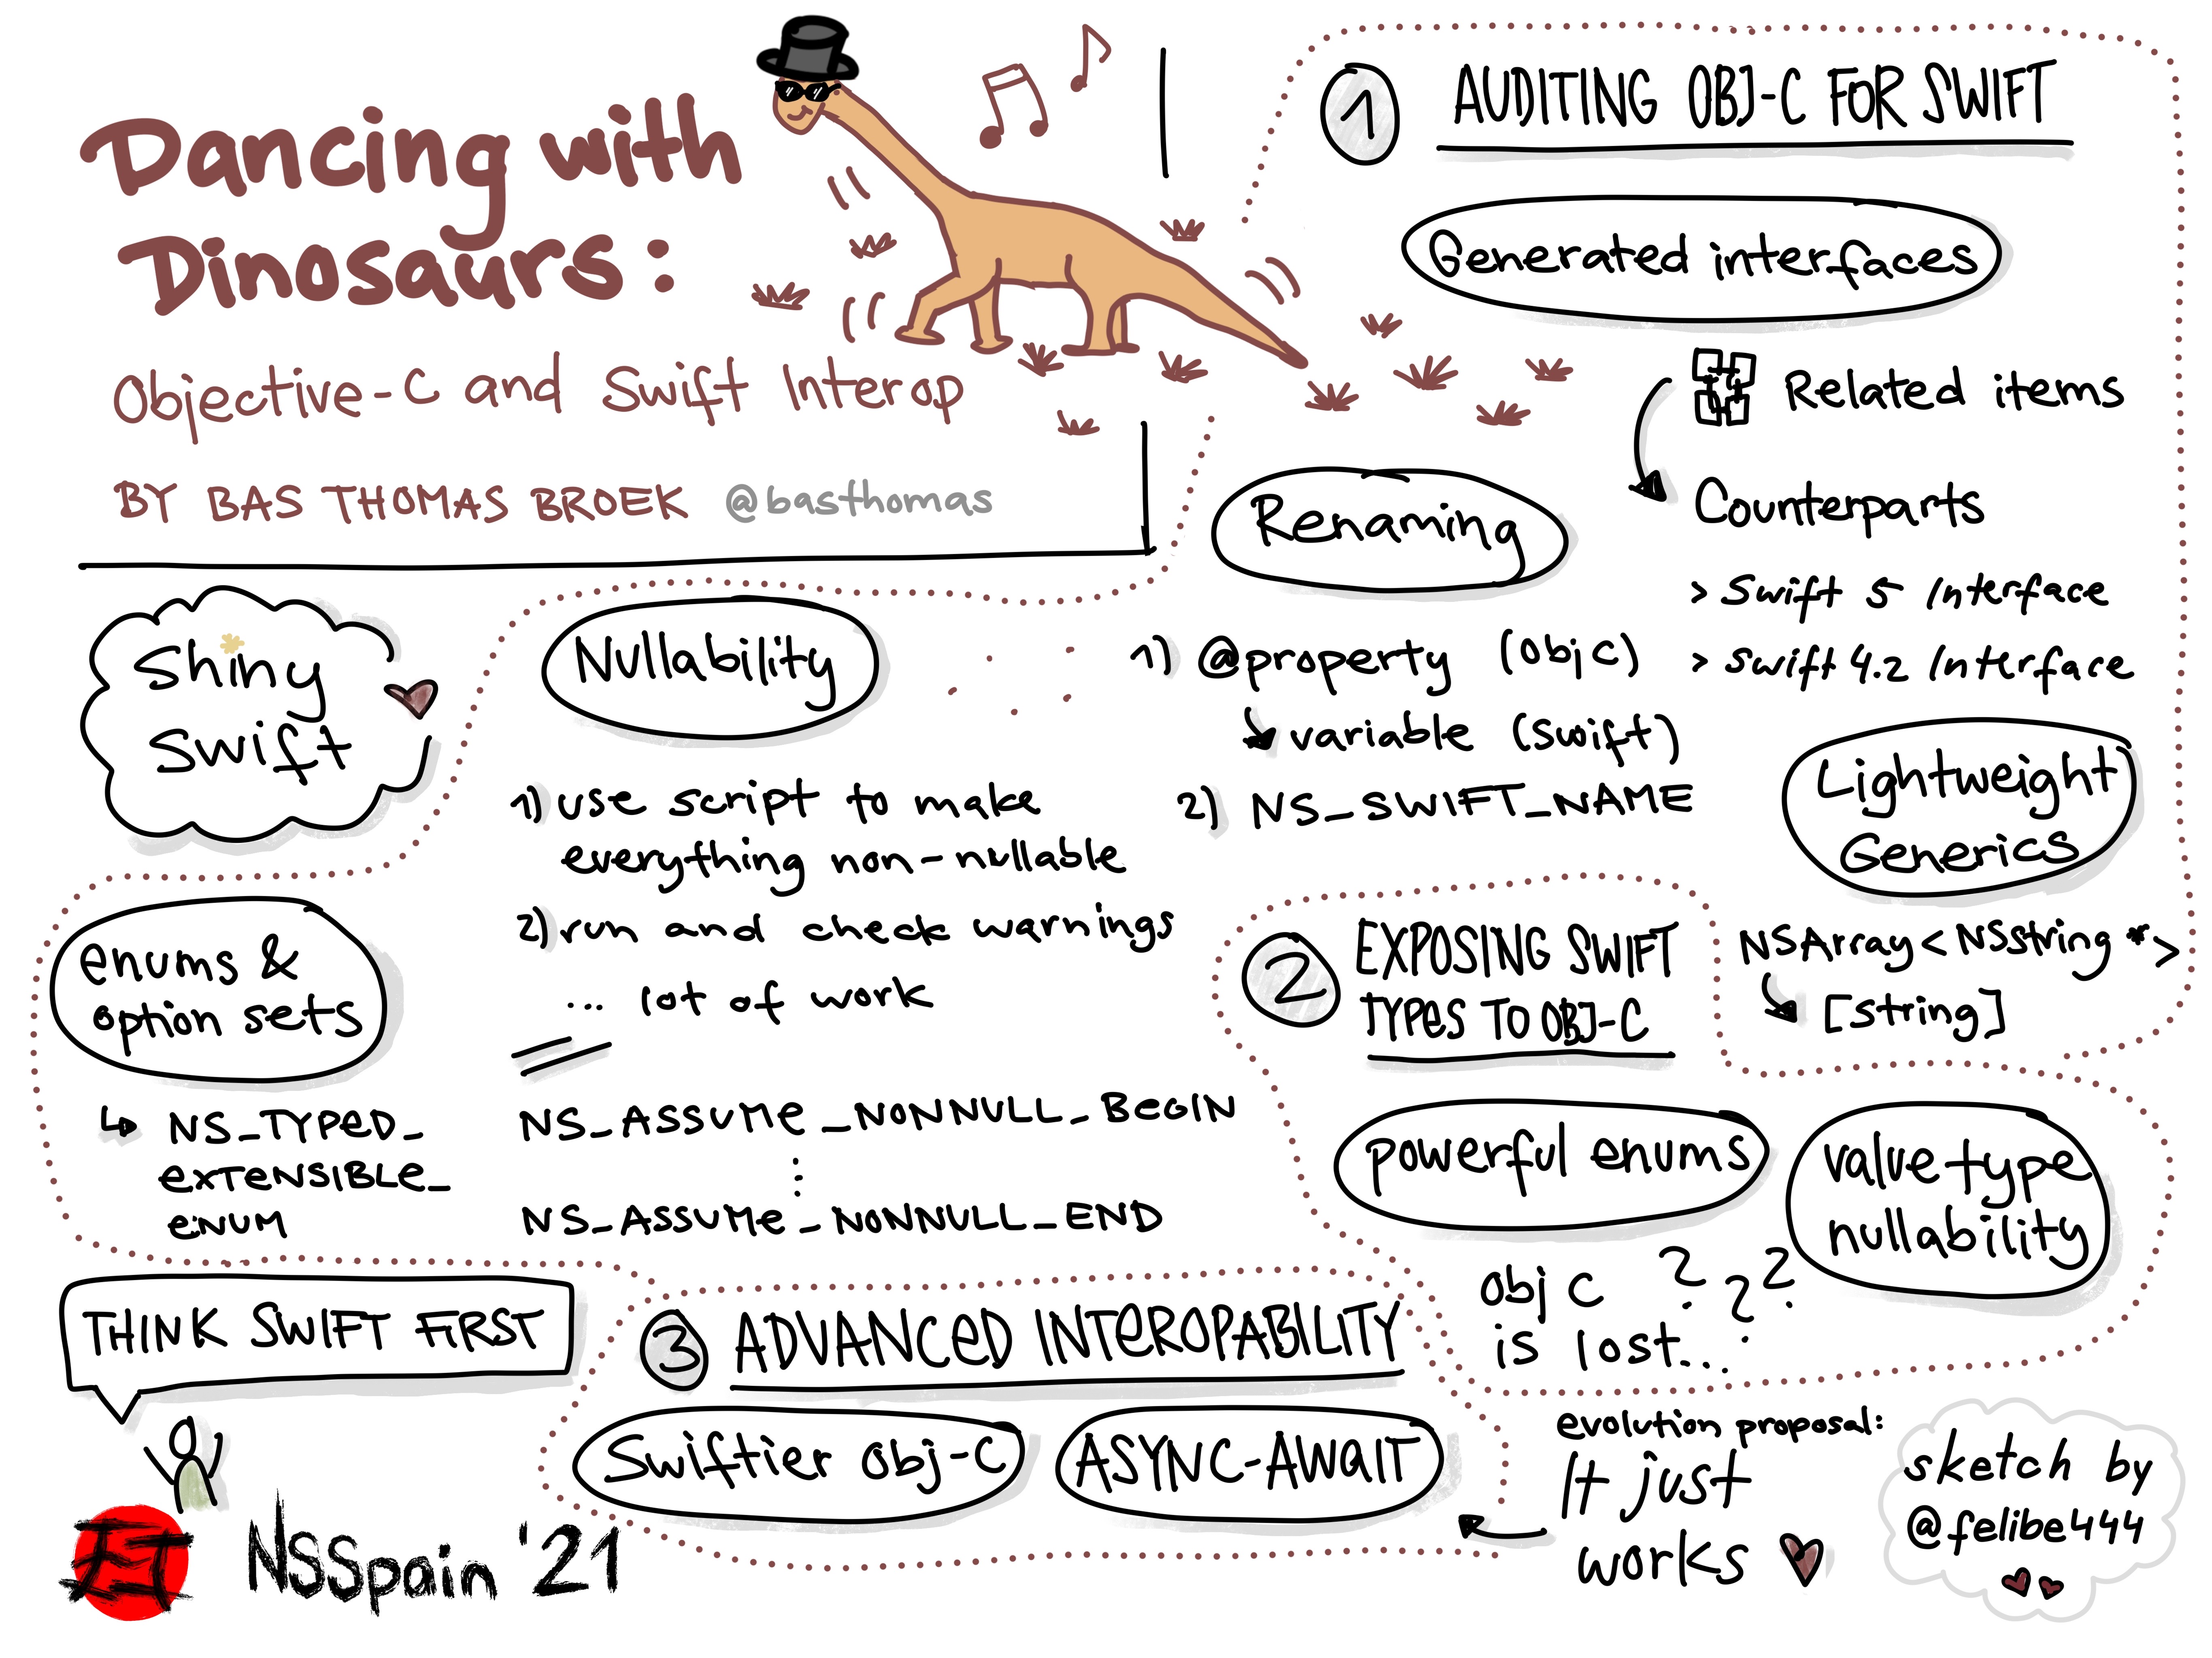 Dancing with
Dinosaurs:
Objective-C and Swift Interop
BY BAS THOMAS BROEK @basthomas
Shiny
Swift
1 AUDITING OBJ-C FOR SWIFT
Generated interfaces
Related items
Counterparts
> Swift 5 Interface
> Swift 4.2 Interface
Renaming
1) @property (Obj C)
variable (Swift)
2) NS_SWIFT_NAME
Lightweight
Generics
NSArray<NSString *>
[String]
Nullability
1) use script to make
everything non-nullable
2) run and check warnings
... lot of work
NS_ASSUME_NONNULL_BEGIN
NS_ASSUME_NONNULL_END
enums &
option sets
NS_TYPED_
EXTENSIBLE_
ENUM
2 EXPOSING SWIFT
TYPES TO OBJ-C
powerful enums
value type
nullability
Obj C ???
is lost...
3 ADVANCED INTEROPABILITY
Swiftier Obj-C
ASYNC-AWAIT
evolution proposal:
It just
works
THINK SWIFT FIRST
NSSpain '21
sketch by
@felibe444